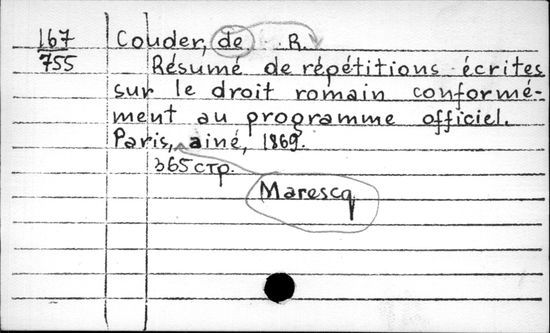 167 Couder, de R.
755 Résumé de répétitions écrites
sur le droit romain conformé-
ment au programme officiel.
Paris, ainé, 1869.
365 стр.
Marescq